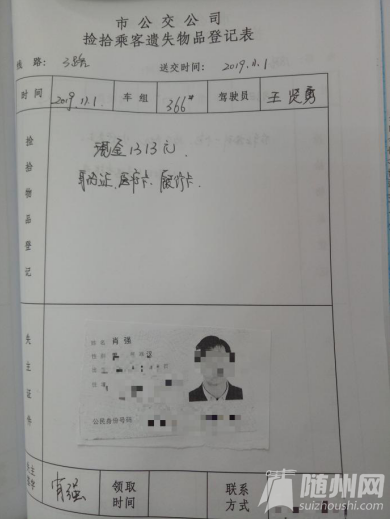 市公交公司
捡拾乘客遗失物品登记表
线路： 3路 送交时间： 2019.11.1
时间 2019.11.1 车组 366# 驾驶员 王贤勇
捡拾物品登记
现金1313元
身份证、医疗卡、
失主证件
姓名 肖强
公民身份号码
肖强 领取时间 联系方式
随州网
suizhoushi.com